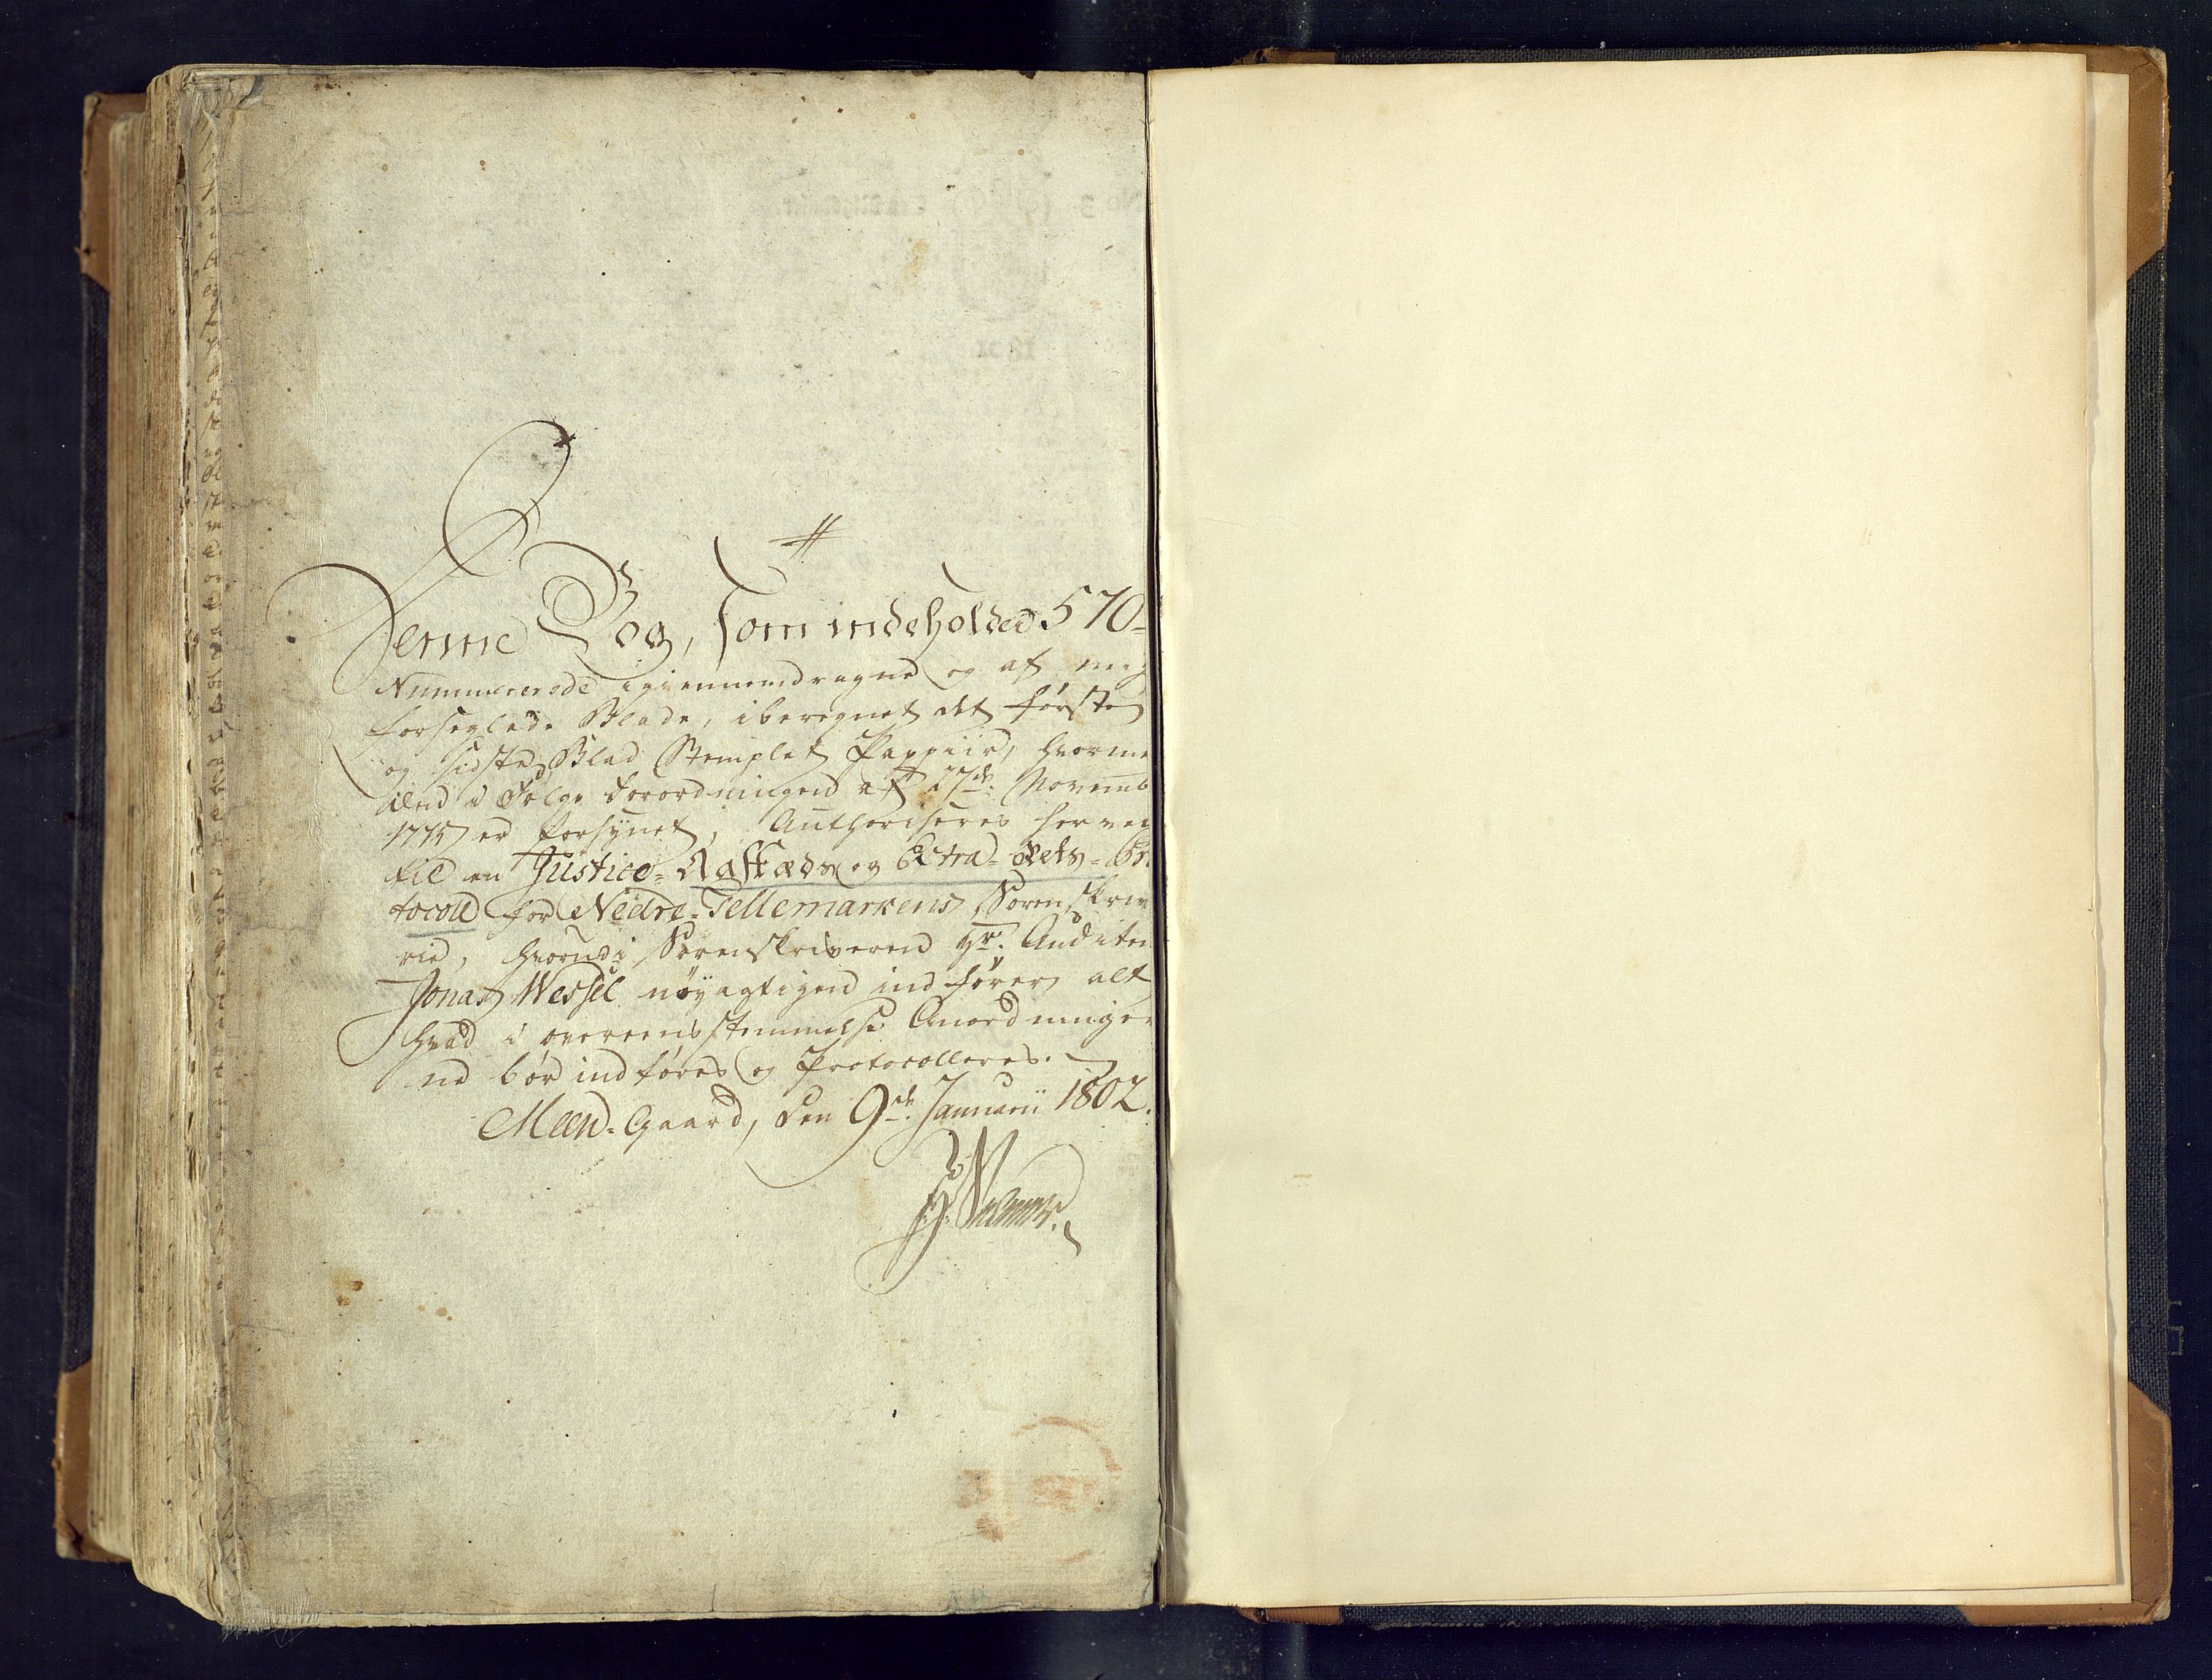 Denne Bog, som indeholder 570=
Nummererede igiennemdragne og af mig
forseglede Blade, iberegnet det første
og sidste Blad Stemplet Pappiir, hvorme
den i Følge Forordningen af 27de Novemb
1775 er forsynet, Authoriseres herved
til en Justice- Ragstæds og Extra-Rets-Pro
tocoll for Nedre-Tellemarkens Sorenskrive
rie, hvorudi Sorenskriveren Hr. Auditeur
Jonas Wessel nøyagtigen indfører alt
hvad i overeensstemmelse Anordninger
ne bør indføres og Protocolleres.
Meen-Gaard, den 9de Januarii 1802.